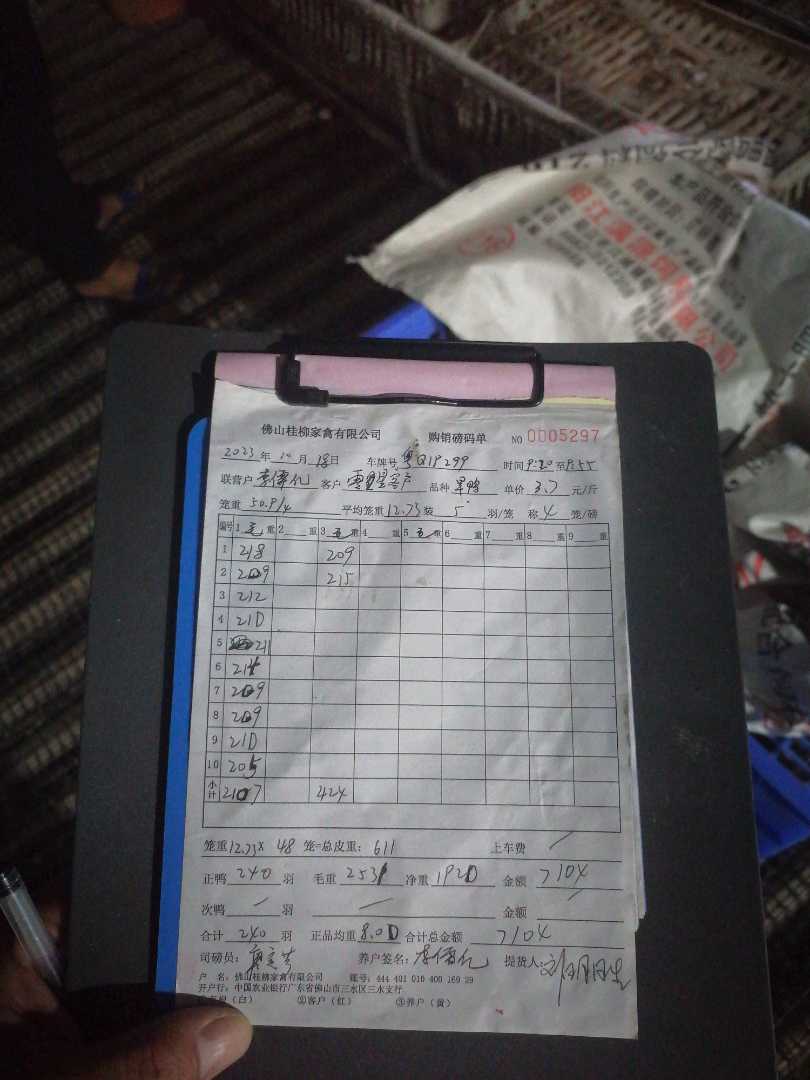 佛山桂柳家禽有限公司 购销磅码单 NO 0005297
2023年10月18日 车牌号 粤Q1P299 时间 9:20至9:55
联营户 客户 零星客户 品种 单价 3.7 元/斤
笼重 50.9/4 平均笼重 12.73 装 5 羽/笼 称 4 笼/磅
编号 1 毛 重 2 重 3 毛 重 4 重 5 毛 重 6 重 7 重 8 重 9 重
1 218 209
2 209 215
3 212
4 210
5 211
6 214
7 209
8 209
9 210
10 205
小计 2107 424
笼重 12.73 × 48 笼=总皮重: 611 上车费 /
正鸭 240 羽 毛重 2531 净重 1920 金额 7104
次鸭 / 羽 / 金额 /
合计 240 羽 正品均重 8.00 合计总金额 7104
司磅员: 养户签名: 提货人:
户 名: 佛山桂柳家禽有限公司 账号: 444 401 010 400 169 29
开户行: 中国农业银行广东省佛山市三水区三水支行
(白) ②客户(红) ③养户(黄)